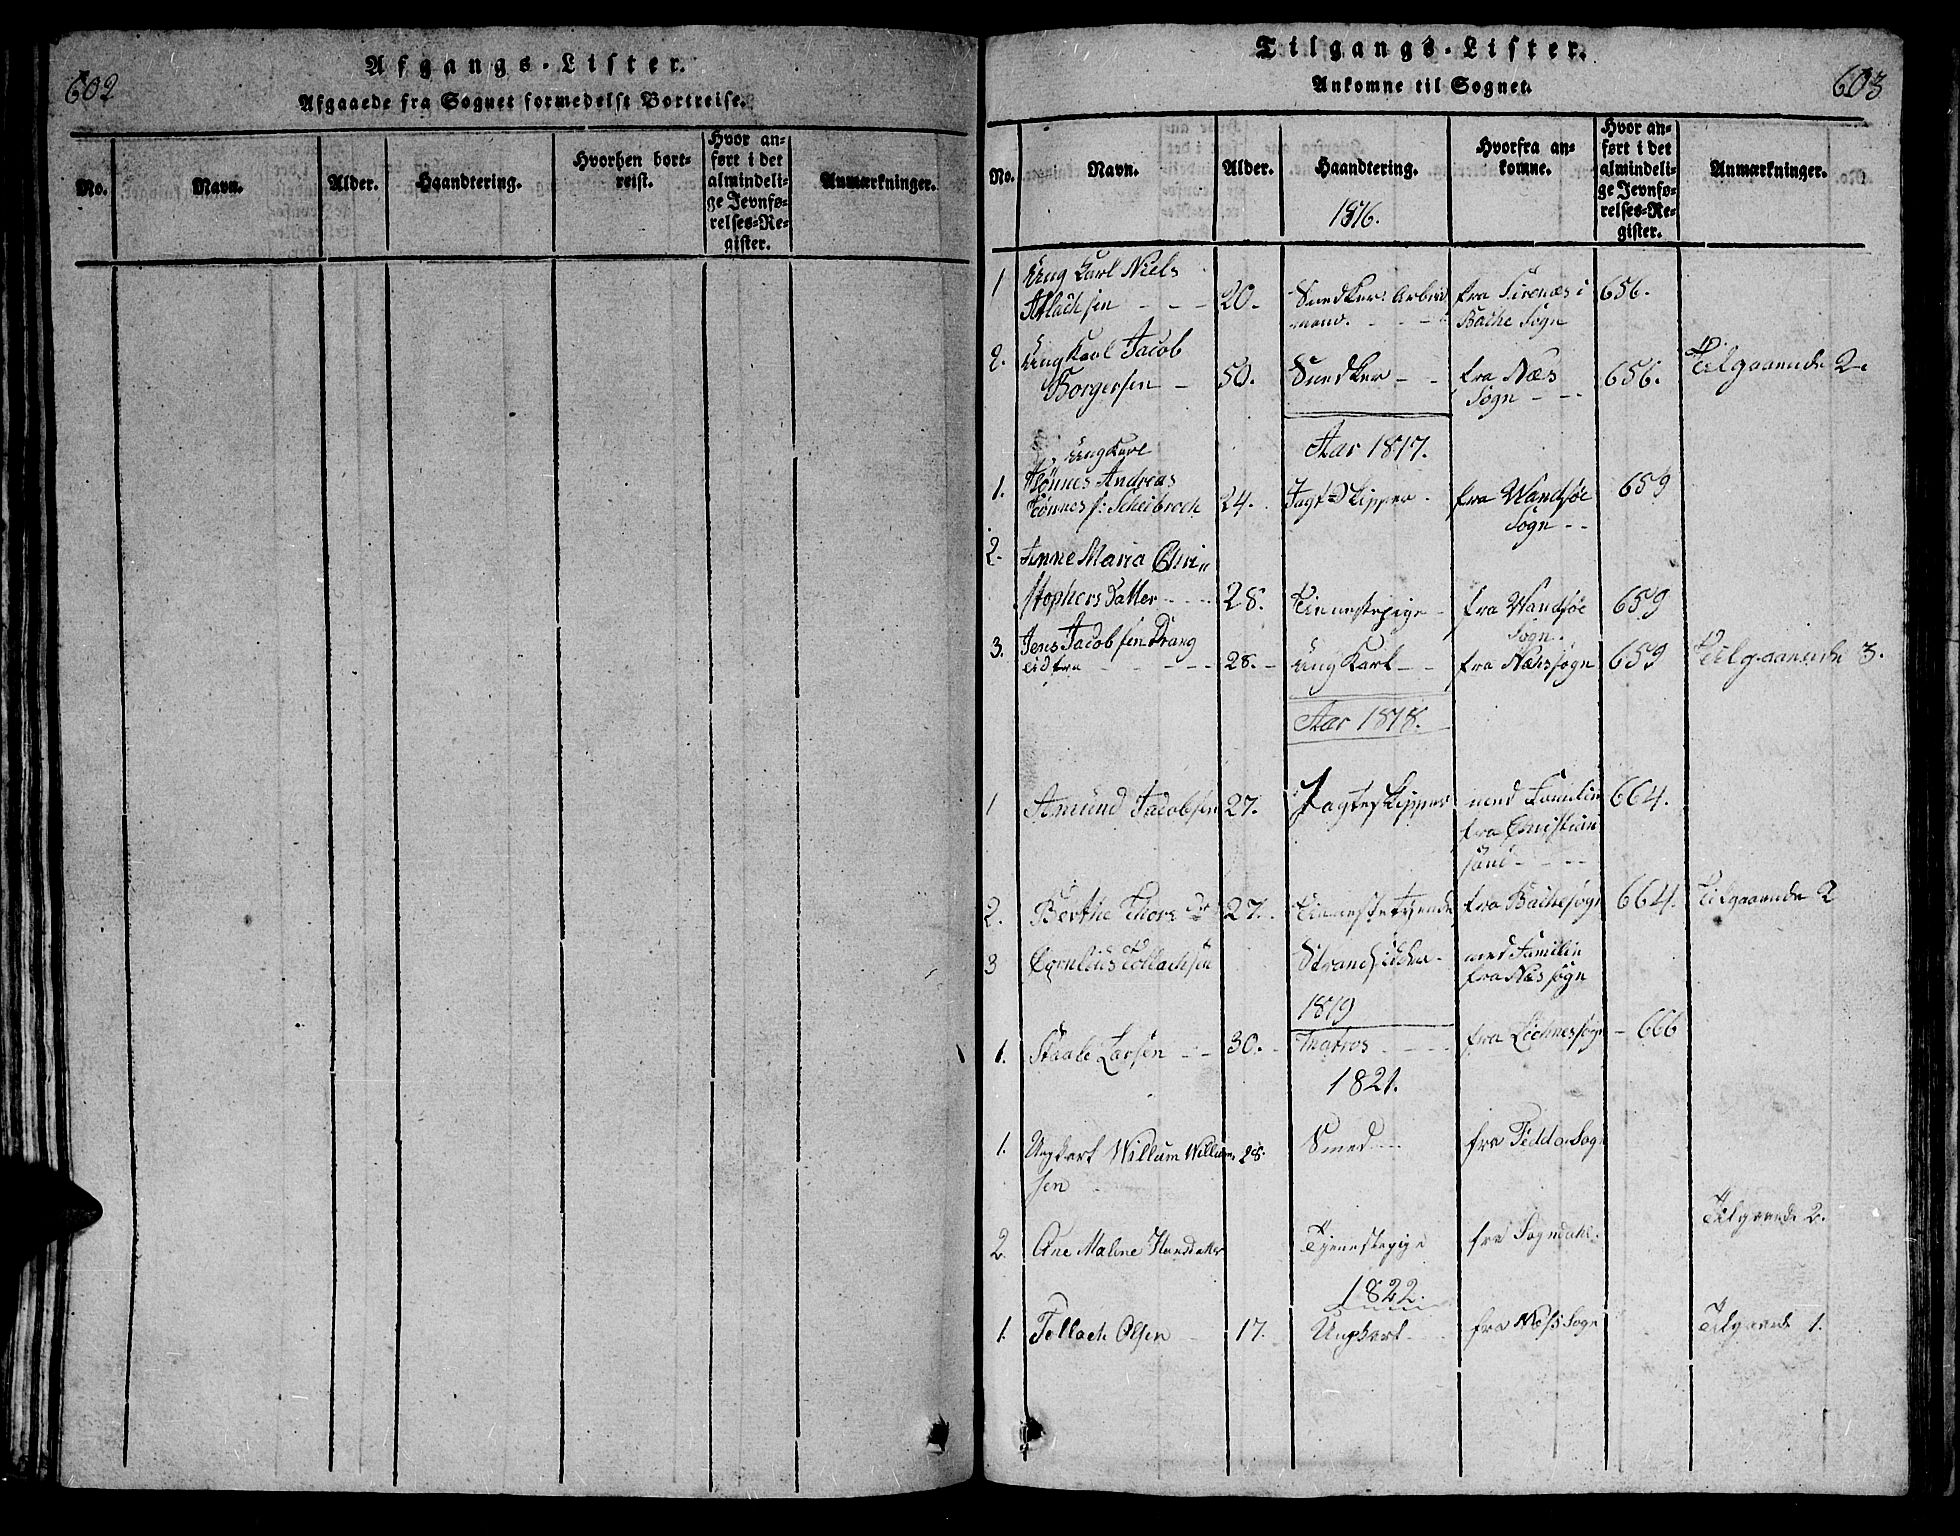 602
Afgangs-Lister.
Afgaaede fra Sognet formedelst Bortreise.
No.
Navn.
Alder.
Haandtering.
Hvorhen bort-
reist.
Hvor an-
ført i det
almindeli-
ge Jevnfø-
relses-Re-
gister.
Anmærkninger.
603
Tilgangs-Lister.
Ankomne til Sognet.
No.
Navn.
Alder.
Haandtering.
Hvorfra an-
komne.
Hvor an-
ført i det
almindeli-
ge Jevnfø-
relses-Re-
gister.
Anmærkninger.
1816.
1 Ung Karl Niels
Atlachsen - - - 20. Snedker Arbeid fra Sirenæs i 656.
mand. - - Bache Sogn
2. Ung Karl Jacob
Borgersen - 50. Snedker - - fra Næs 656. Tilgaaende 2.
Sogn - - -
Aar 1817.
Ung Karl
1. Tønnes Andreas
Tønnes s: Scheibroch 24. Jagt Skipper - fra Wandsøe 659
Sogn - -
2. Anne Maria Chri
stophers Datter - - - 28. Tienestepige - fra Wandsøe 659
Sogn.
3. Jens Jacobsen Drang
eid fra - - - 28. - Ung Karl - - fra Næssogn 659 Tilgaaende 3.
Aar 1818.
1 Amund Jacobsen 27. Jagteskipper med Familie 664.
fra Christian
sand - - -
2. Berthe Thors Dr 27. Tienestetyende fra Bachesogn 664. Tilgaaende 2
3 Cornelius Tollachsen Strandsidder - med Familie
fra Næssogn
1819
1. Staale Larsen - - 30. - Matros - - - fra Liknessogn - 666
1821.
1. Ungkarl Willum Willum 28. Smed - - fra Fedda Sogn
sen -
2. Ane Malene Hansdatter Tjenestepige fra Sogndahl. Tilgaaende 2.
1822.
1. Tollach Olsen - 17. Ungkarl - fra Næs Sogn Tilgaaende 1.